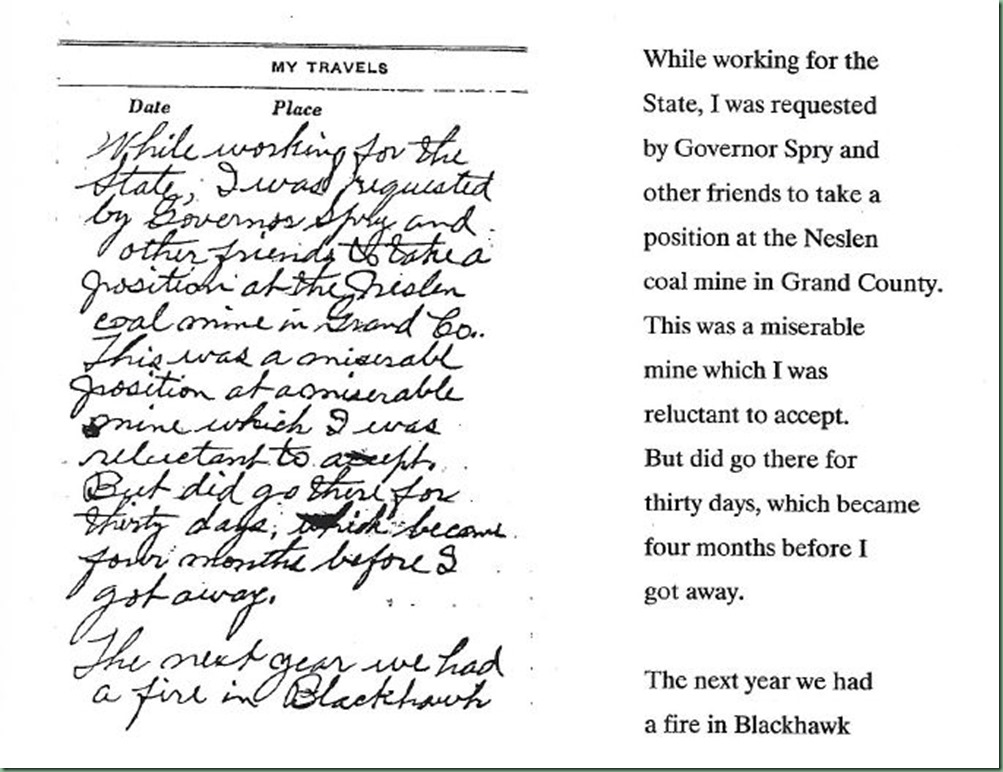 MY TRAVELS
Date Place
While working for the
State, I was requested
by Governor Spry and
other friends to take a
position at the Neslen
coal mine in Grand Co.
This was a miserable
position at a miserable
mine which I was
reluctant to accept.
But did go there for
thirty days, which became
four months before I
got away.
The next year we had
a fire in Blackhawk
While working for the
State, I was requested
by Governor Spry and
other friends to take a
position at the Neslen
coal mine in Grand County.
This was a miserable
mine which I was
reluctant to accept.
But did go there for
thirty days, which became
four months before I
got away.
The next year we had
a fire in Blackhawk